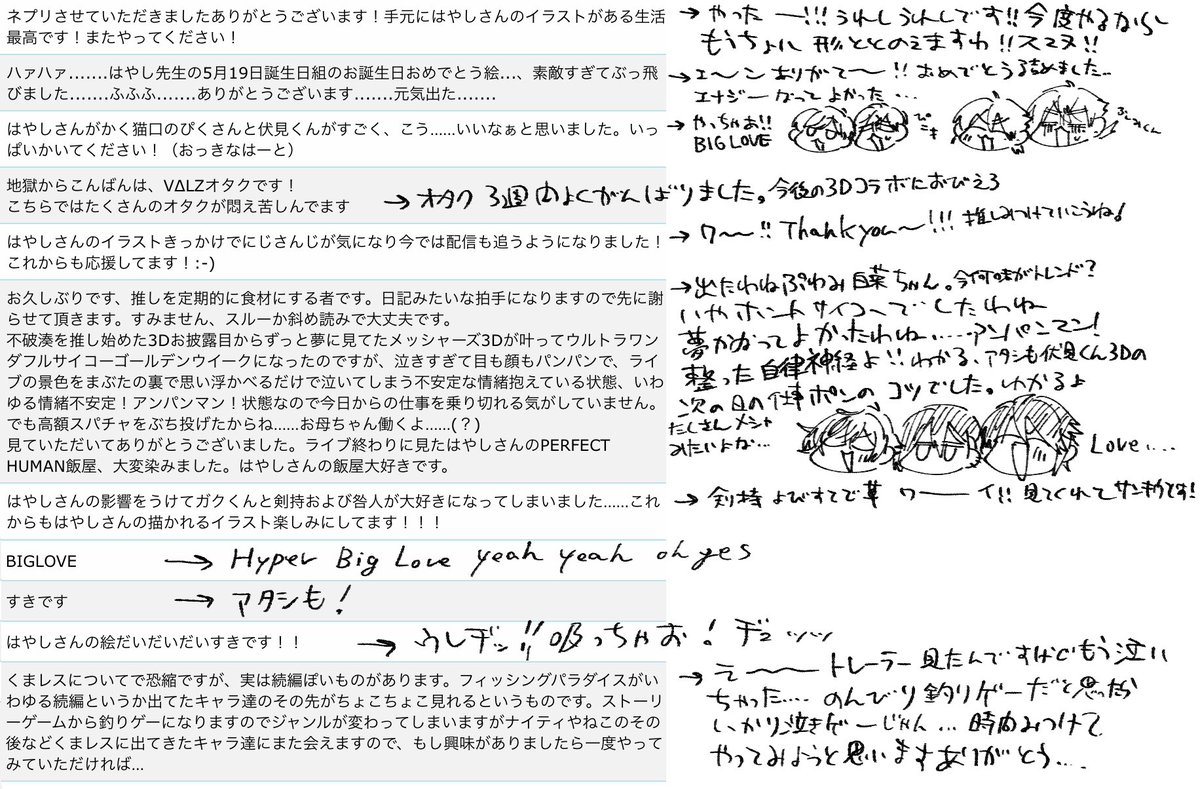 ネプリさせていただきましたありがとうございます！手元にはやしさんのイラストがある生活
最高です！またやってください！
→やったー!!!うれしうれしです!!今度やるなら
もうちょい形ととのえますわ!!スマヌ!!
ハァハァ.......はやし先生の5月19日誕生日組のお誕生日おめでとう絵...、素敵すぎてぶっ飛
びました.......ふふふ.......ありがとうございます.......元気出た.......
→エ〜ンありがて〜!!おめでとう詰めました..
エナジーなってよかった...
はやしさんがかく猫口のぴくさんと伏見くんがすごく、こう......いいなぁと思いました。いっ
ぱいかいてください！（おっきなはーと）
→やっちゃお!!
BIG LOVE
地獄からこんばんは、VΔLZオタクです！
こちらではたくさんのオタクが悶え苦しんでます
→オタク3週間よくがんばりました。今後の3Dコラボにおびえろ
はやしさんのイラストきっかけでにじさんじが気になり今では配信も追うようになりました！
これからも応援してます！:-)
→ワ〜〜!!Thank you〜!!!推しみつけていこうね!
お久しぶりです、推しを定期的に食材にする者です。日記みたいな拍手になりますので先に謝
らせて頂きます。すみません、スルーか斜め読みで大丈夫です。
不破湊を推し始めた3Dお披露目からずっと夢に見てたメッシャーズ3Dが叶ってウルトラワン
ダフルサイコーゴールデンウイークになったのですが、泣きすぎて目も顔もパンパンで、ライ
ブの景色をまぶたの裏で思い浮かべるだけで泣いてしまう不安定な情緒抱えている状態、いわ
ゆる情緒不安定！アンパンマン！状態なので今日からの仕事を乗り切れる気がしていません。
でも高額スパチャをぶち投げたからね......お母ちゃん働くよ......(？)
見ていただいてありがとうございました。ライブ終わりに見たはやしさんのPERFECT
HUMAN飯屋、大変染みました。はやしさんの飯屋大好きです。
→出たわねぷわみ白菜ちゃん。今何味がトレンド?
いやホントサイコーでしたわね
夢かなってよかったわね.....アンパンマン!
整った自律神経よ!!わかる、アタシも伏見くん3Dの
次の日の仕事ポンのコツでした。わかるよ
たくさんメシャ
みたいよな...
Love....
はやしさんの影響をうけてガクくんと剣持および咎人が大好きになってしまいました......これ
からもはやしさんの描かれるイラスト楽しみにしてます！！！
→剣持よびすてで草 ワーーイ!!見てくれてサンキウです!
BIGLOVE
→Hyper Big Love yeah yeah oh yes
すきです
→アタシも!
はやしさんの絵だいだいだいすきです！！
→ウレヂッ!!吸っちゃお!ヂュッッ
くまレスについてで恐縮ですが、実は続編ぽいものがあります。フィッシングパラダイスがい
わゆる続編というか出てたキャラ達のその先がちょこちょこ見れるというものです。ストーリ
ーゲームから釣りゲーになりますのでジャンルが変わってしまいますがナイティやねこのその
後などくまレスに出てきたキャラ達にまた会えますので、もし興味がありましたら一度やって
みていただければ...
→え〜〜トレーラー見たんですけどもう泣い
ちゃった....のんびり釣りゲーだと思ったら
しっかり泣きゲーじゃん...時間みつけて
やってみようと思いますありがとう....